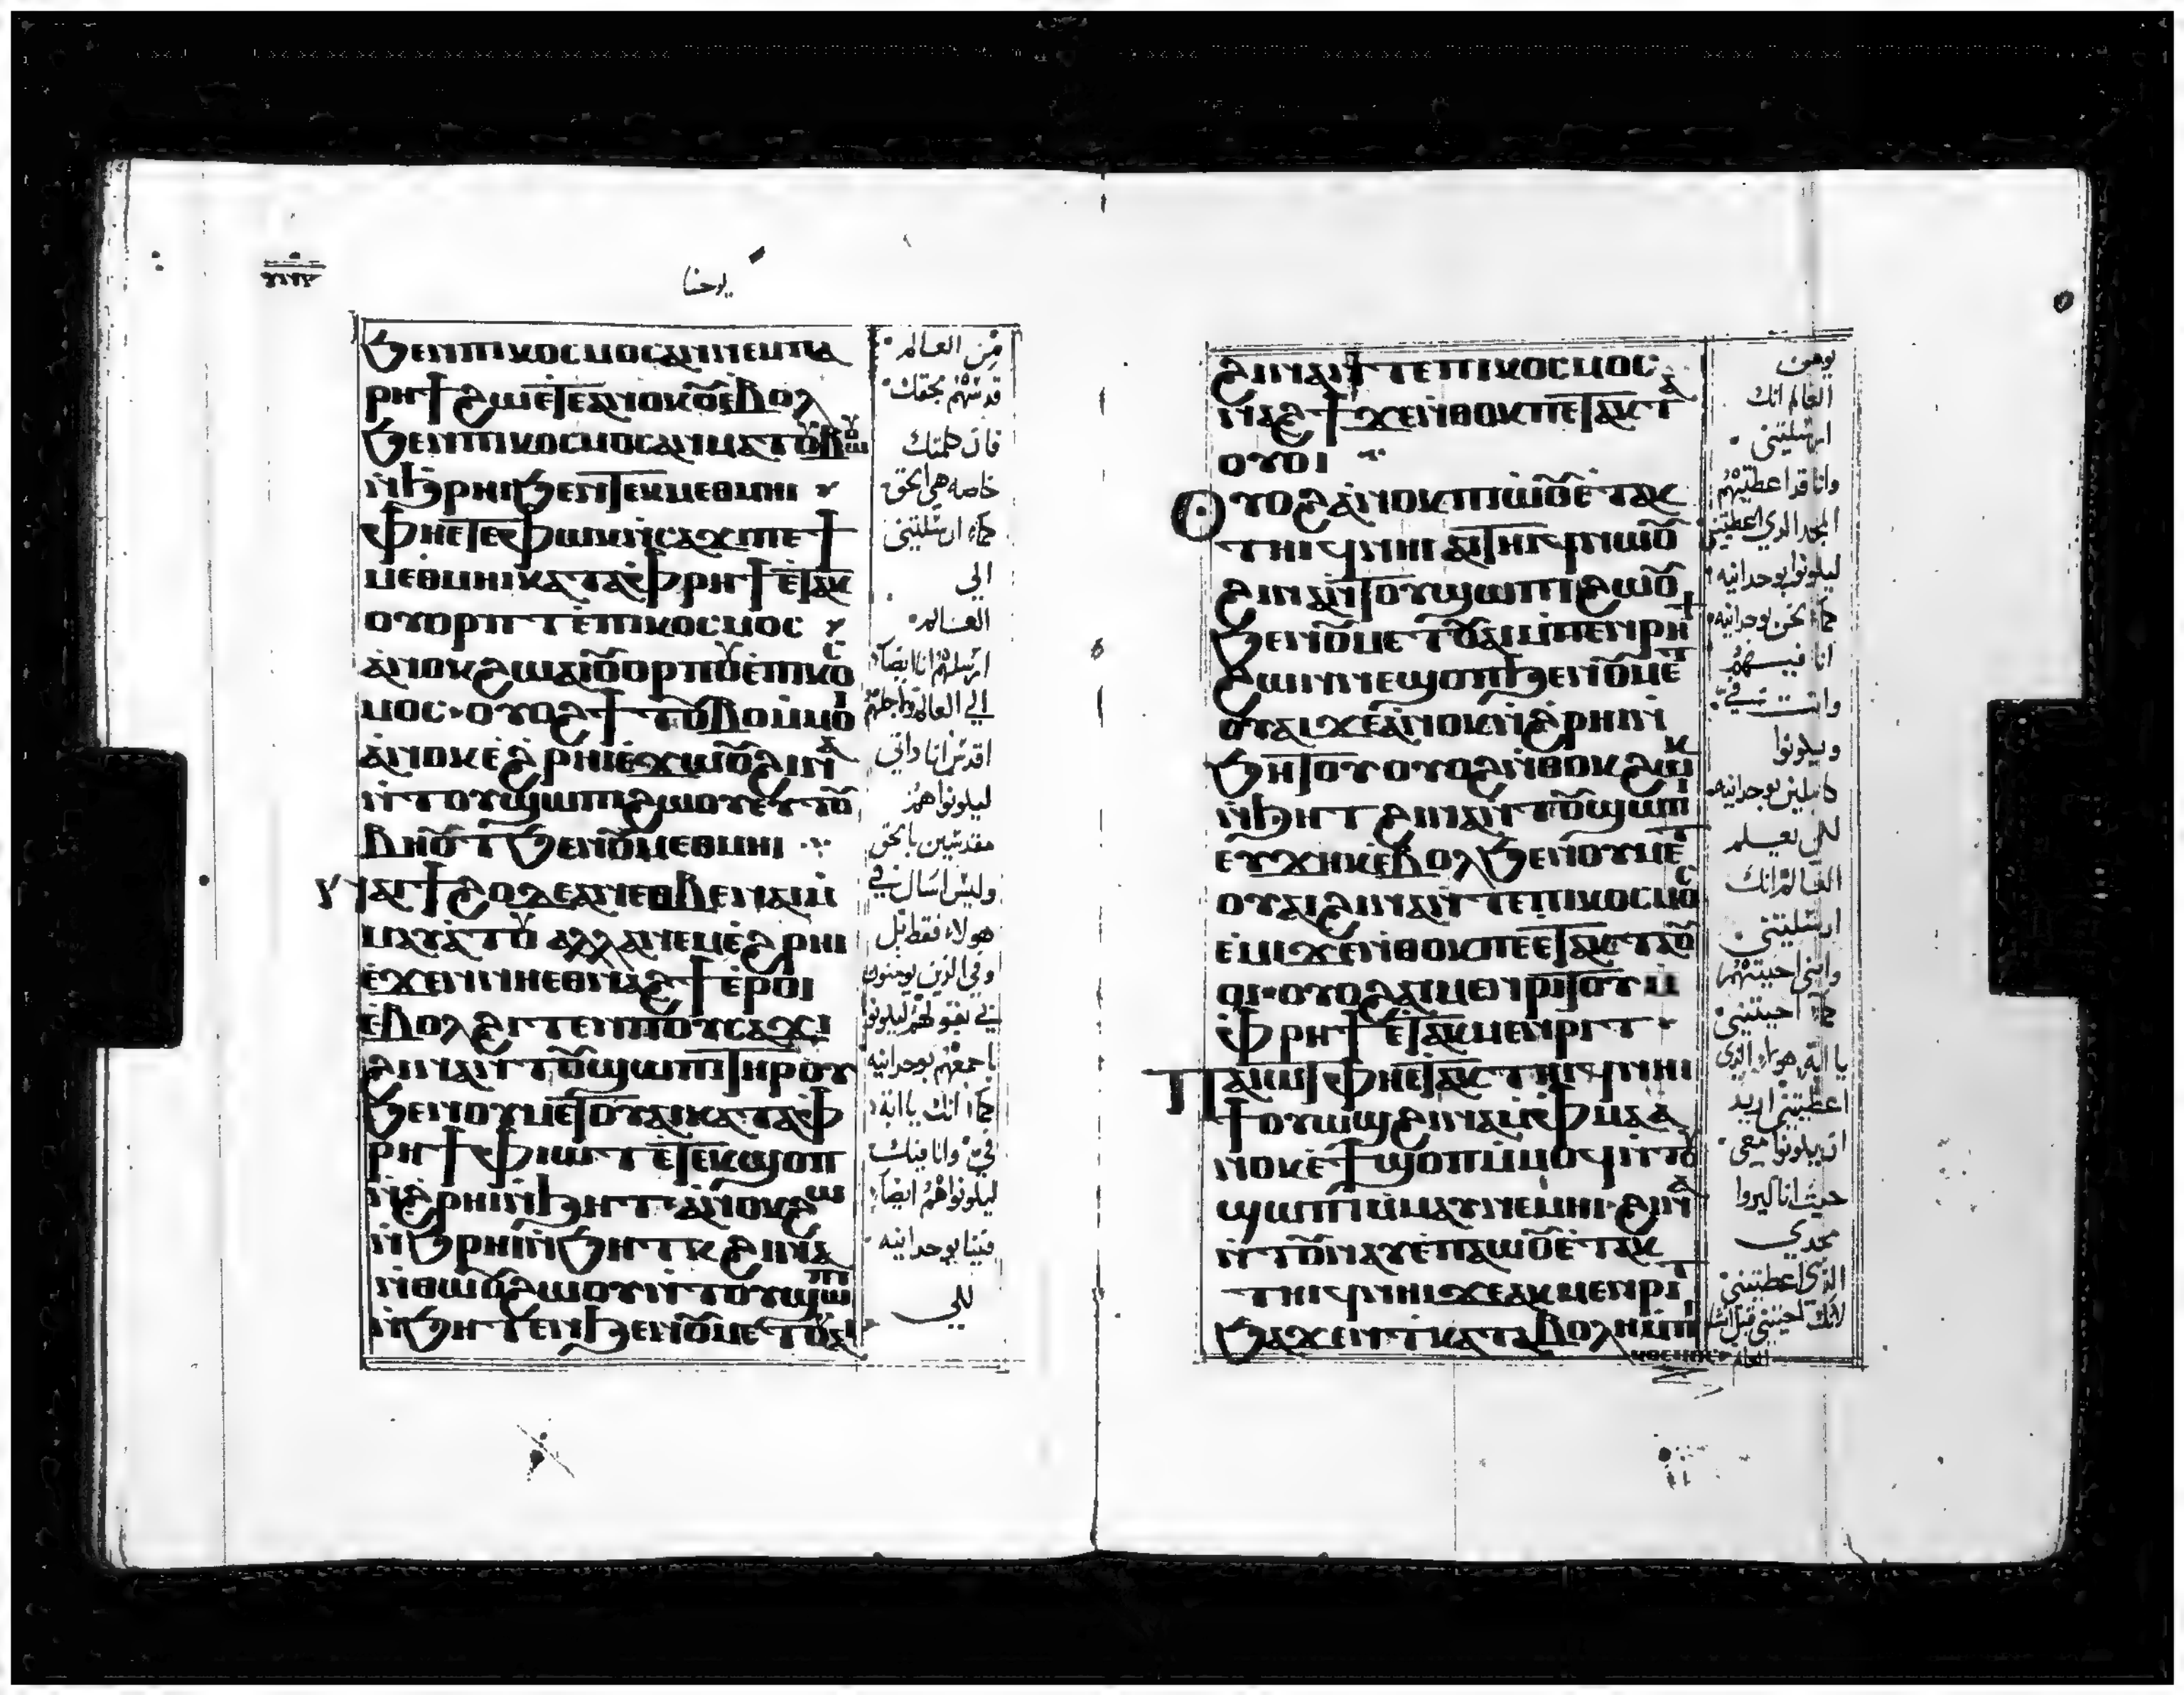 يوحنا
ϧⲉⲛⲡⲓⲕⲟⲥⲙⲟⲥⲁⲛⲛⲉⲙⲡⲁ
ⲣⲏϯϩⲱⲉⲧⲉⲁⲛⲟⲕⲟⲩⲉⲃⲟⲗ
ϧⲉⲛⲡⲓⲕⲟⲥⲙⲟⲥⲁⲛⲙⲁⲧⲟⲩⲃⲱⲟⲩ
ⲛ̀ϧⲣⲏⲓϧⲉⲛⲧⲉⲕⲙⲉⲑⲙⲏⲓ
ⲫⲏⲉⲧⲉⲫⲱⲕⲛ̀ⲥⲁϫⲓⲡⲉϯ
ⲙⲉⲑⲙⲏⲓⲕⲁⲧⲁⲫⲣⲏϯⲉⲧⲁⲕ
ⲟⲩⲟⲣⲡⲧⲉ̀ⲡⲓⲕⲟⲥⲙⲟⲥ
ⲁⲛⲟⲕϩⲱⲁⲓⲟⲩⲟⲣⲡⲟⲩⲉ̀ⲡⲓⲕⲟⲥ
ⲙⲟⲥ·ⲟⲩⲟϩϯⲧⲟⲩⲃⲟⲙ̀ⲙⲟⲓ
ⲁⲛⲟⲕⲉ̀ϩⲣⲏⲓⲉ̀ϫⲱⲟⲩϩⲓⲛⲁ
ⲛ̀ⲧⲟⲩϣⲱⲡⲓϩⲱⲟⲩⲉⲩⲧⲟⲩ
ⲃⲏⲟⲩⲧϧⲉⲛⲟⲩⲙⲉⲑⲙⲏⲓ
ⲛⲁⲓϯϩⲟⲇⲉⲁⲛⲉⲑⲃⲉⲛⲁⲓⲙ̀
ⲙⲁⲩⲁⲧⲟⲩ ⲁⲗⲗⲁⲛⲉⲙⲉ̀ϩⲣⲏⲓ
ⲉ̀ϫⲉⲛⲛⲏⲉⲑⲛⲁϩϯⲉ̀ⲣⲟⲓ
ⲉ̀ⲃⲟⲗϩⲓⲧⲉⲛⲡⲟⲩⲥⲁϫⲓ
ϩⲓⲛⲁⲛⲧⲟⲩϣⲱⲡⲓⲧⲏⲣⲟⲩ
ϧⲉⲛⲟⲩⲙⲉⲧⲟⲩⲁⲓⲕⲁⲧⲁⲫ
ⲣⲏϯⲫⲓⲱⲧⲉⲧⲉⲕϣⲟⲡ
ⲛ̀ϩⲣⲏⲓⲛ̀ϧⲏⲧ·ⲁⲛⲟⲕϩⲱ
ⲛ̀ϧⲣⲏⲓⲛ̀ϧⲏⲧⲕϩⲓⲛⲁ
ⲛ̀ⲑⲱⲟⲩϩⲱⲟⲩⲛⲧⲟⲩϣⲱⲡⲓ
ⲛ̀ϧⲏⲧⲉⲛϧⲉⲛⲟⲩⲙⲉⲧⲟⲩⲁⲓ
من العالم
قدسهم بحقك
فان كلمتك
خاصه هي الحق
كما ارسلتني
الي
العالم
ارسلتهم انا ايضا
الي العالم ولاجلهم
اقدس انا ذاتي
ليكونوا هم
مقدسين بالحق
وليس اسال في
هولاء فقط بل
وفي الذين يومنون
بي بقولهم ليكونوا
باجمعهم بوحدانيه
كما انك يا ابه
في وانا فيك
ليكونوا هم ايضا
فينا بوحدانيه
لكي
ϩⲓⲛⲁⲛⲧⲉⲡⲓⲕⲟⲥⲙⲟⲥ
ⲛⲁϩϯϫⲉⲛ̀ⲑⲟⲕⲡⲉⲧⲁⲕⲧⲁ
ⲟⲩⲟⲓ
ⲟⲩⲟϩⲁⲛⲟⲕⲡⲓⲱⲟⲩⲉ̀ⲧⲁⲕ
ⲧⲏⲓϥⲛⲏⲓⲁⲓⲧⲏⲓϥⲛⲱⲟⲩ
ϩⲓⲛⲁⲛⲧⲟⲩϣⲱⲡⲓϩⲱⲟⲩ
ϧⲉⲛⲟⲩⲙⲉⲧⲟⲩⲁⲓⲙ̀ⲡⲉⲛⲣⲏϯ
ϩⲱⲛⲛⲉϣⲟⲡϧⲉⲛⲟⲩⲙⲉⲧ
ⲟⲩⲁⲓϫⲉⲁⲛⲟⲕⲛ̀ϩⲣⲏⲓⲛ̀
ϧⲏⲧⲟⲩⲟⲩⲟϩⲛ̀ⲑⲟⲕϩⲱⲕ
ⲛ̀ϧⲏⲧϩⲓⲛⲁⲛⲧⲟⲩϣⲱⲡⲓ
ⲉⲩϫⲏⲕⲉ̀ⲃⲟⲗϧⲉⲛⲟⲩⲙⲉⲧ
ⲟⲩⲁⲓϩⲓⲛⲁⲛⲧⲉⲡⲓⲕⲟⲥⲙⲟⲥ
ⲉ̀ⲙⲓϫⲉⲛ̀ⲑⲟⲕⲡⲉⲉⲧⲁⲕⲧⲁⲟⲩ
ⲟⲓ·ⲟⲩⲟϩⲁⲓⲙⲉⲛⲣⲓⲧⲟⲩⲙ
ⲫⲣⲏϯⲉⲧⲁⲕⲙⲉⲛⲣⲓⲧ
ⲡⲁⲓⲱⲧⲫⲏⲉⲧⲁⲕⲧⲏⲓϥⲛⲏⲓ
ϯⲟⲩⲱϣϩⲓⲛⲁⲙ̀ⲫⲙⲁⲁ
ⲛⲟⲕⲉ̀ϯϣⲟⲡⲙ̀ⲙⲟϥⲛⲧⲟⲩ
ϣⲱⲡⲓⲙ̀ⲙⲁⲩⲛⲉⲙⲏⲓ·ϩⲓⲛⲁ
ⲛⲧⲟⲩⲛⲁⲩⲉ̀ⲡⲁⲱⲟⲩⲉ̀ⲧⲁⲕ
ⲧⲏⲓϥⲛⲏⲓϫⲉⲁⲕⲙⲉⲛⲣⲓⲧ
ϧⲁϫⲉⲛⲧⲕⲁⲧⲁⲃⲟⲗⲏⲙ̀ⲡⲓ
ⲕⲟⲥⲙⲟⲥ
يومن
العالم انك
ارسلتني
وانا قد اعطيتهم
المجد الذي اعطيتني
ليكونوا بوحدانيه
كما نحن بوحدانيه
انا فيهم
وانت في
ويكونوا
كاملين بوحدانيه
لكي يعلم
العالم انك
ارسلتني
وانني احببتهم
كما احببتني
يا ابة هولاء الذي
اعطيتني اريد
ان يكونوا معي
حيث انا ليروا
مجدي
الذي اعطيتني
لانك احببتني قبل انشا
العالم